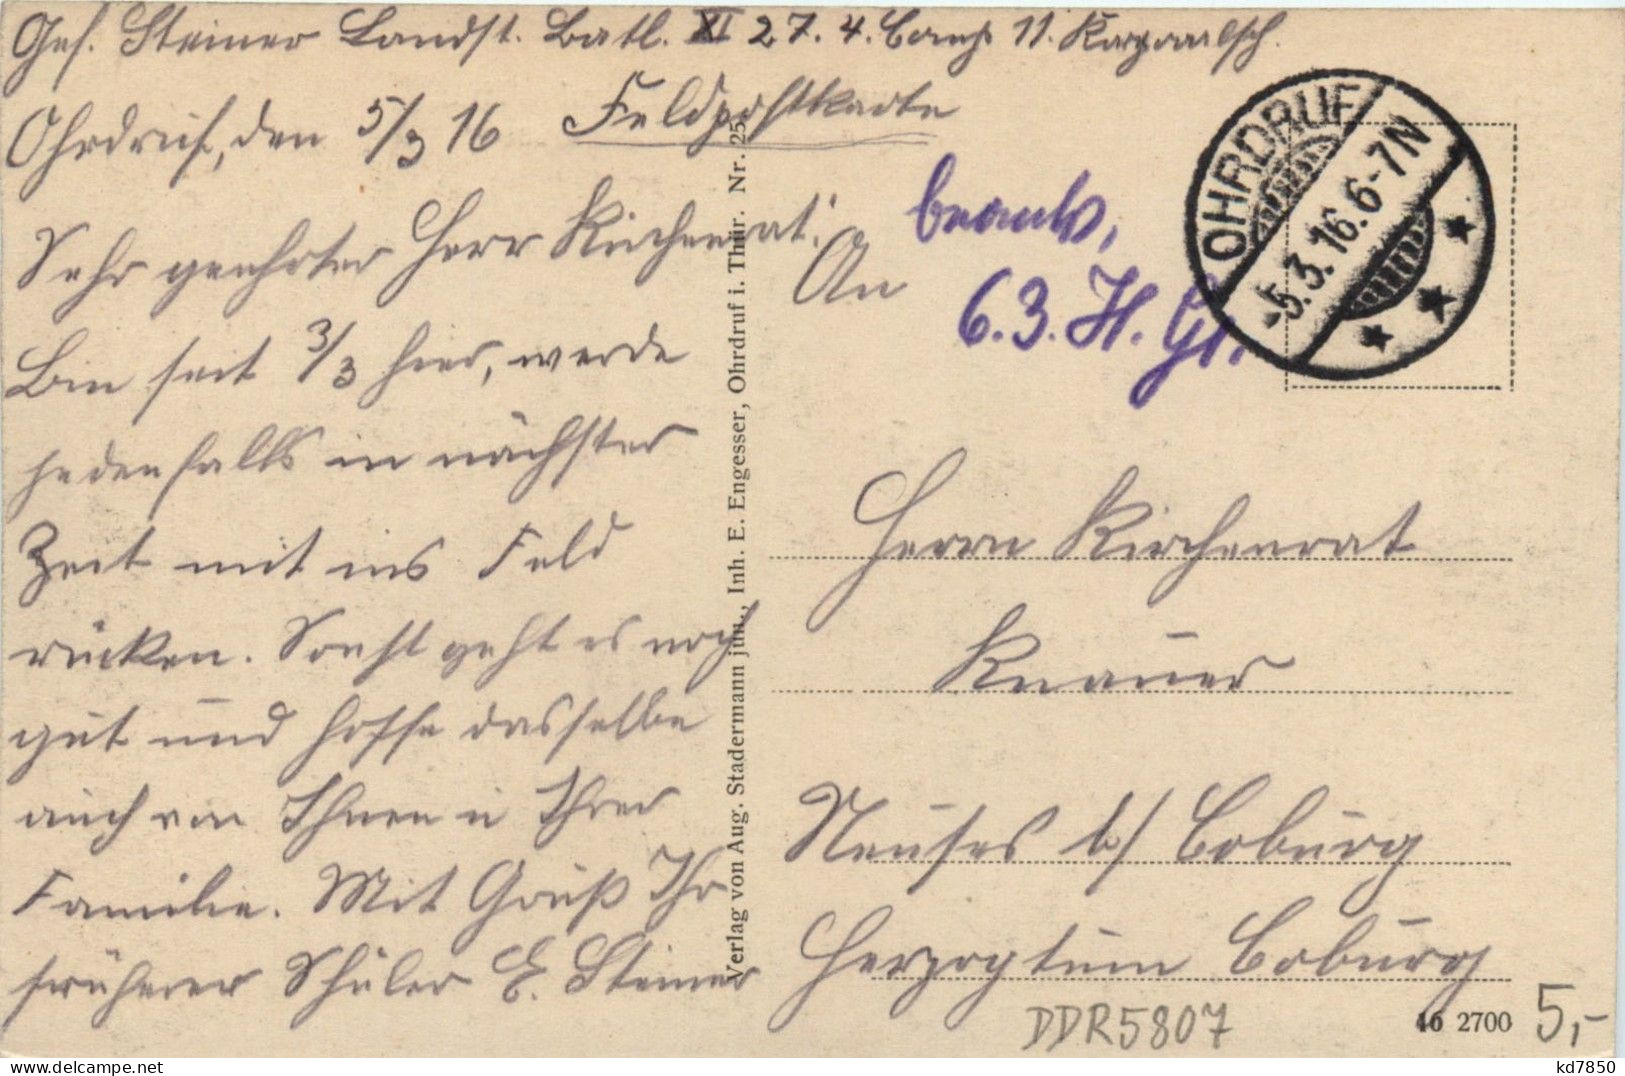 Gef. Steiner Landst. Batl. XI 27. 4. Comp. 11. Korporalsch.
Ohrdruf, den 5/3 16 Feldpostkarte
Sehr geehrter Herr Kirchenrat!
Bin seit 3/3 hier, werde
jedenfalls in nächster
Zeit mit ins Feld
rücken. Sonst geht es noch
gut und hoffe dasselbe
auch von Ihnen u Ihrer
Familie. Mit Gruß Ihr
früherer Schüler E. Steiner
Verlag von Aug. Stadermann jun., Inh. E. Engesser, Ohrdruf i. Thür. Nr. 25.
OHRDRUF
-5.3.16.6-7N
beantw.
6.3. H. Gr.
An
Herrn Kirchenrat
Knauer
Neuses b/ Coburg
Herzogtum Coburg
DDR5807
46 2700
5,-
delcampe.net
kd7850